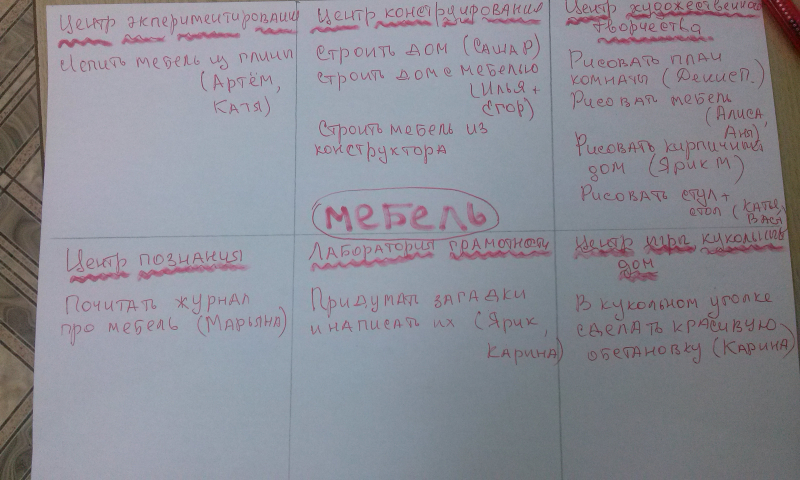 Центр экпериментирования
Лепить мебель из глины
(Артём,
Катя)
Центр конструирования
Строить дом (Саша Р)
Строить дом с мебелью
(Илья +
Егор)
Строить мебель из
конструктора
Центр художественного
творчества
Рисовать план
комнаты (Денис П.)
Рисовать мебель
(Алиса,
Аня)
Рисовать кирпичный
дом (Ярик М)
Рисовать стул +
стол (Катя,
Вася)
мебель
Центр познания
Почитать журнал
про мебель (Марьяна)
Лаборатория грамотности
Придумать загадки
и написать их (Ярик,
Карина)
Центр игр кукольный
дом
В кукольном уголке
сделать красивую
обстановку (Карина)